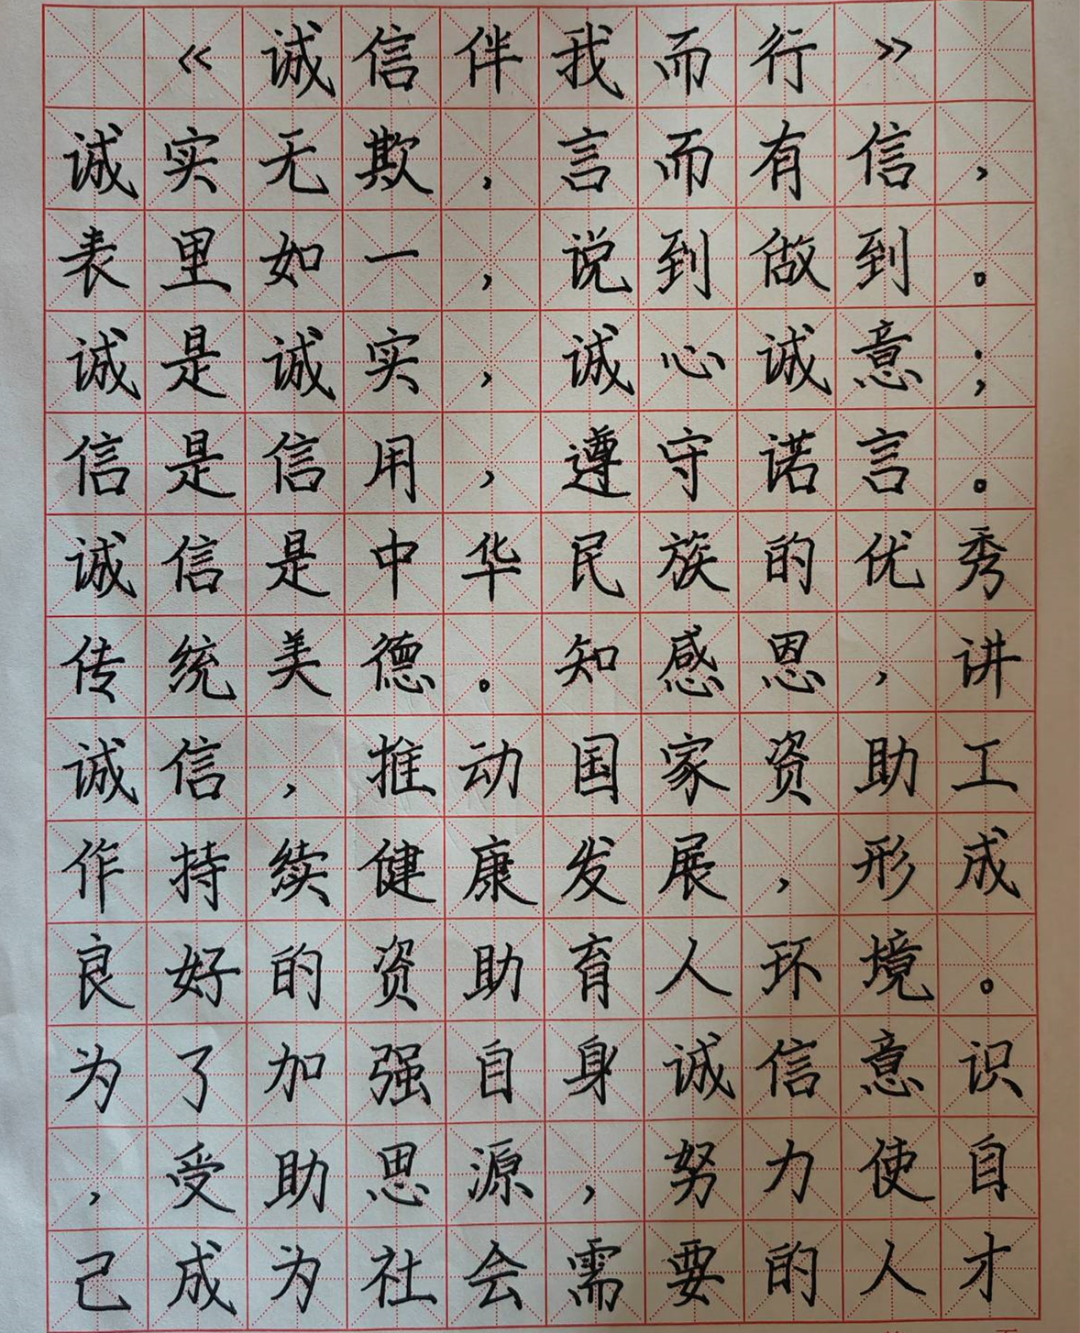 《诚信伴我而行》
诚实无欺，言而有信，
表里如一，说到做到。
诚是诚实，诚心诚意；
信是信用，遵守诺言。
诚信是中华民族的优秀
传统美德。知感恩，讲
诚信，推动国家资助工
作持续健康发展，形成
良好的资助育人环境。
为了加强自身诚信意识
，受助思源，努力使自
己成为社会需要的人才